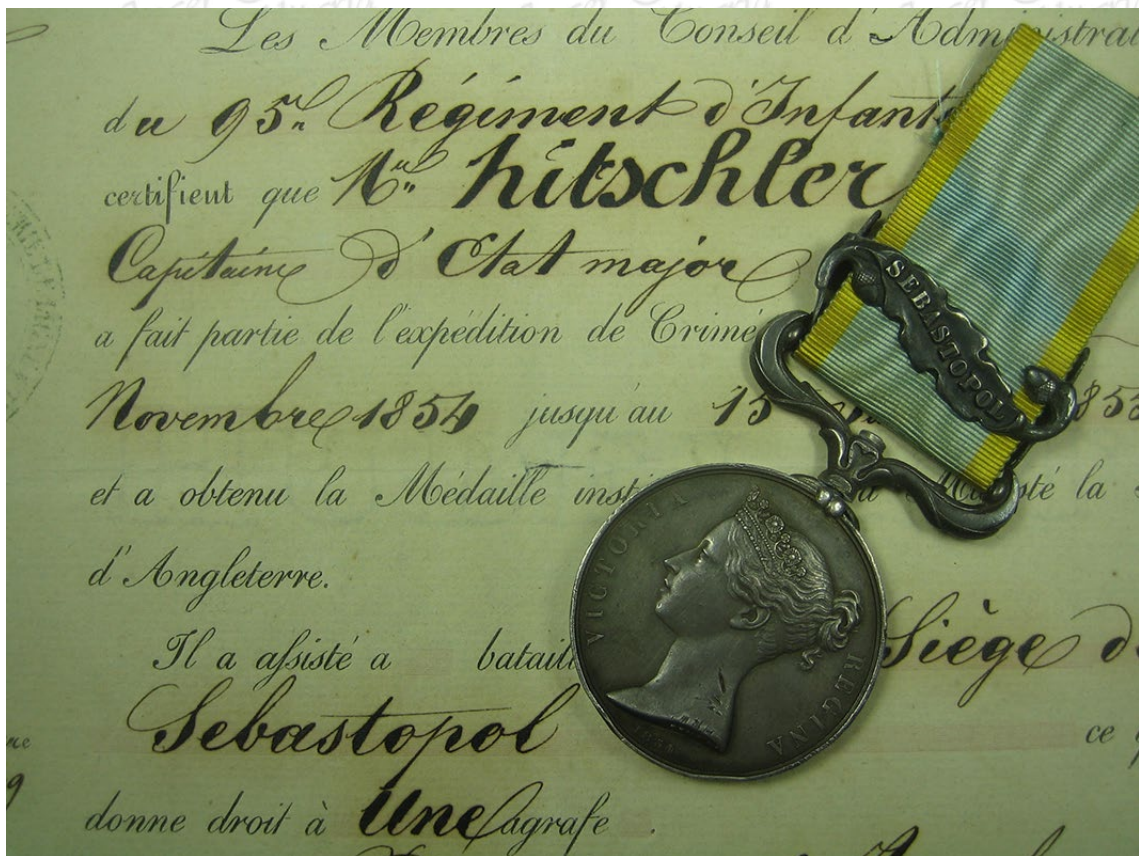 Les Membres du Conseil d'Administrat
du 95e Régiment d'Infant
certifient que Mr hitschler
Capitaine d'Etat major
a fait partie de l'expédition de Crimé
Novembre 1854 jusqu'au 15 185
et a obtenu la Médaille insti sté la
d'Angleterre.
Il a assisté a batail Siège d
Sebastopol ce
donne droit à Une agrafe .
SEBASTOPOL
VICTORIA REGINA